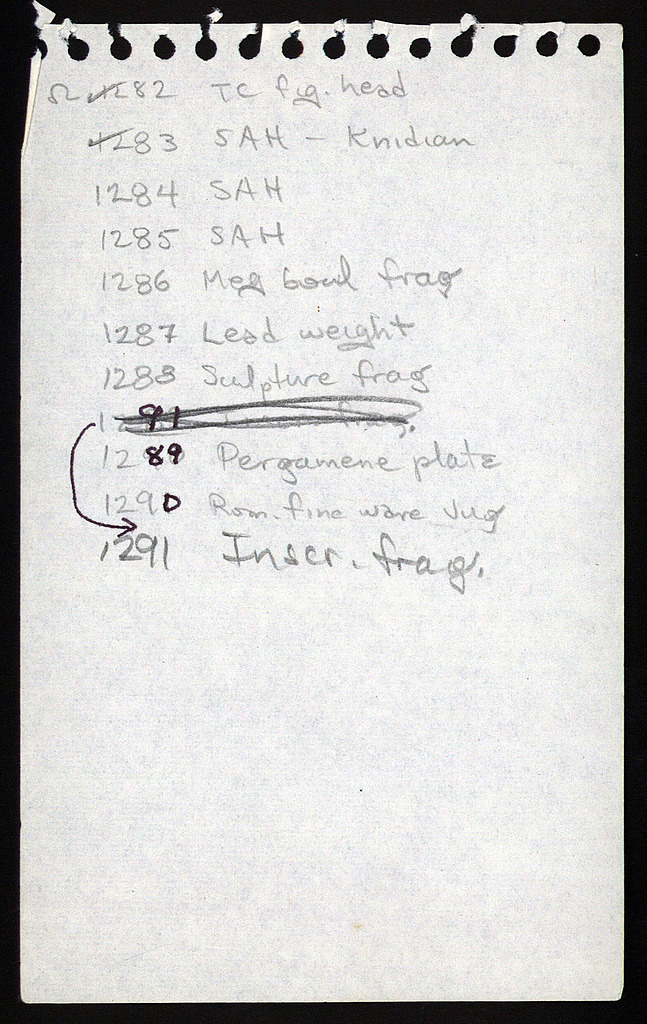 Ω 1282 TC fig. head
1283 SAH - Knidian
1284 SAH
1285 SAH
1286 Meg bowl frag
1287 Lead weight
1288 Sculpture frag
1291
1289 Pergamene plate
1290 Rom. fine ware Jug
1291 Inscr. frag.